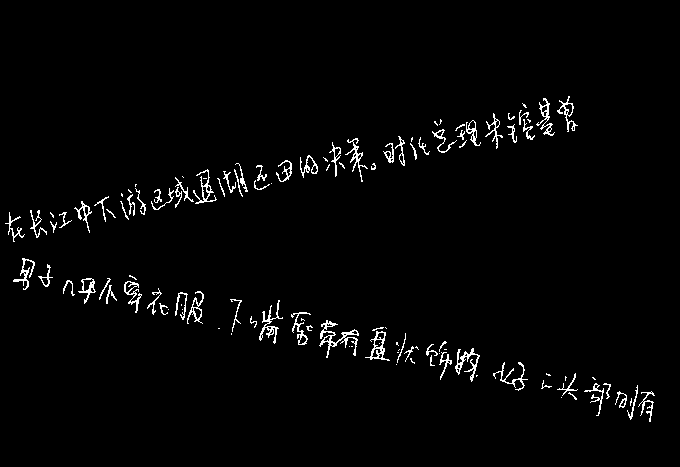 在长江中下游区域退湖还田的决策。时任总理朱镕基曾
男子几乎不穿衣服．下嘴唇常有盘状饰物 好头部则有